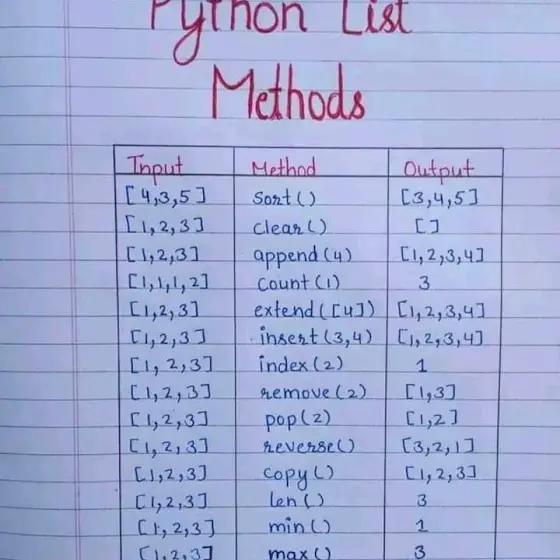 Python List
Methods
Input Method Output
[4,3,5] sort() [3,4,5]
[1,2,3] clear() []
[1,2,3] append(4) [1,2,3,4]
[1,1,1,2] count(1) 3
[1,2,3] extend([4]) [1,2,3,4]
[1,2,3] insert(3,4) [1,2,3,4]
[1,2,3] index(2) 1
[1,2,3] remove(2) [1,3]
[1,2,3] pop(2) [1,2]
[1,2,3] reverse() [3,2,1]
[1,2,3] copy() [1,2,3]
[1,2,3] len() 3
[1,2,3] min() 1
[1,2,3] max() 3